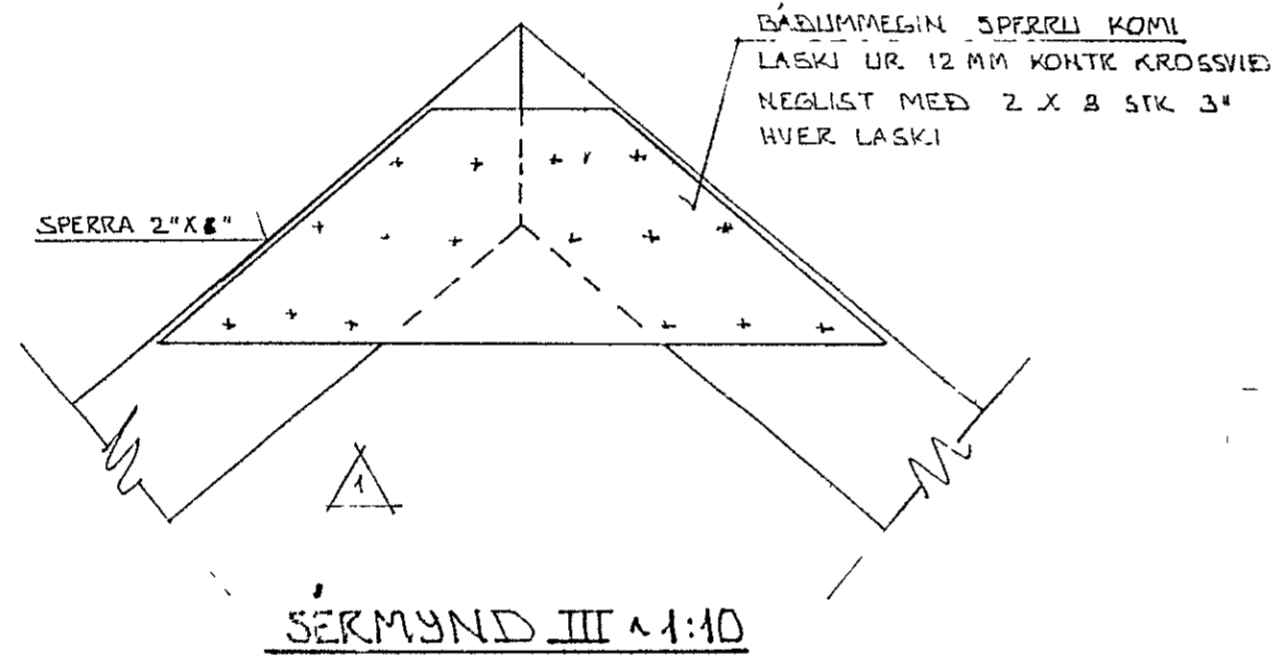 BÁÐUMMEGIN SPERRU KOMI
LASKI ÚR 12 MM KONTR KROSSVIÐ
NEGLIST MEÐ 2 X 8 STK 3"
HVER LASKI
SPERRA 2"X
1
SÉRMYND III ~ 1:10